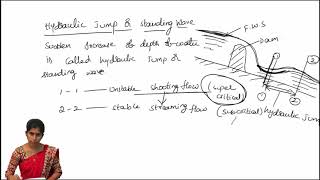 Hydraulic Jump & Standing Wave
Sudden Increase of depth of water
is called hydraulic Jump &
standing wave
1-1 — Unstable shooting flow (super critical)
2-2 — stable streaming flow (subcritical)
F.W.S
Dam
hydraulic Jump
1
2
1
2